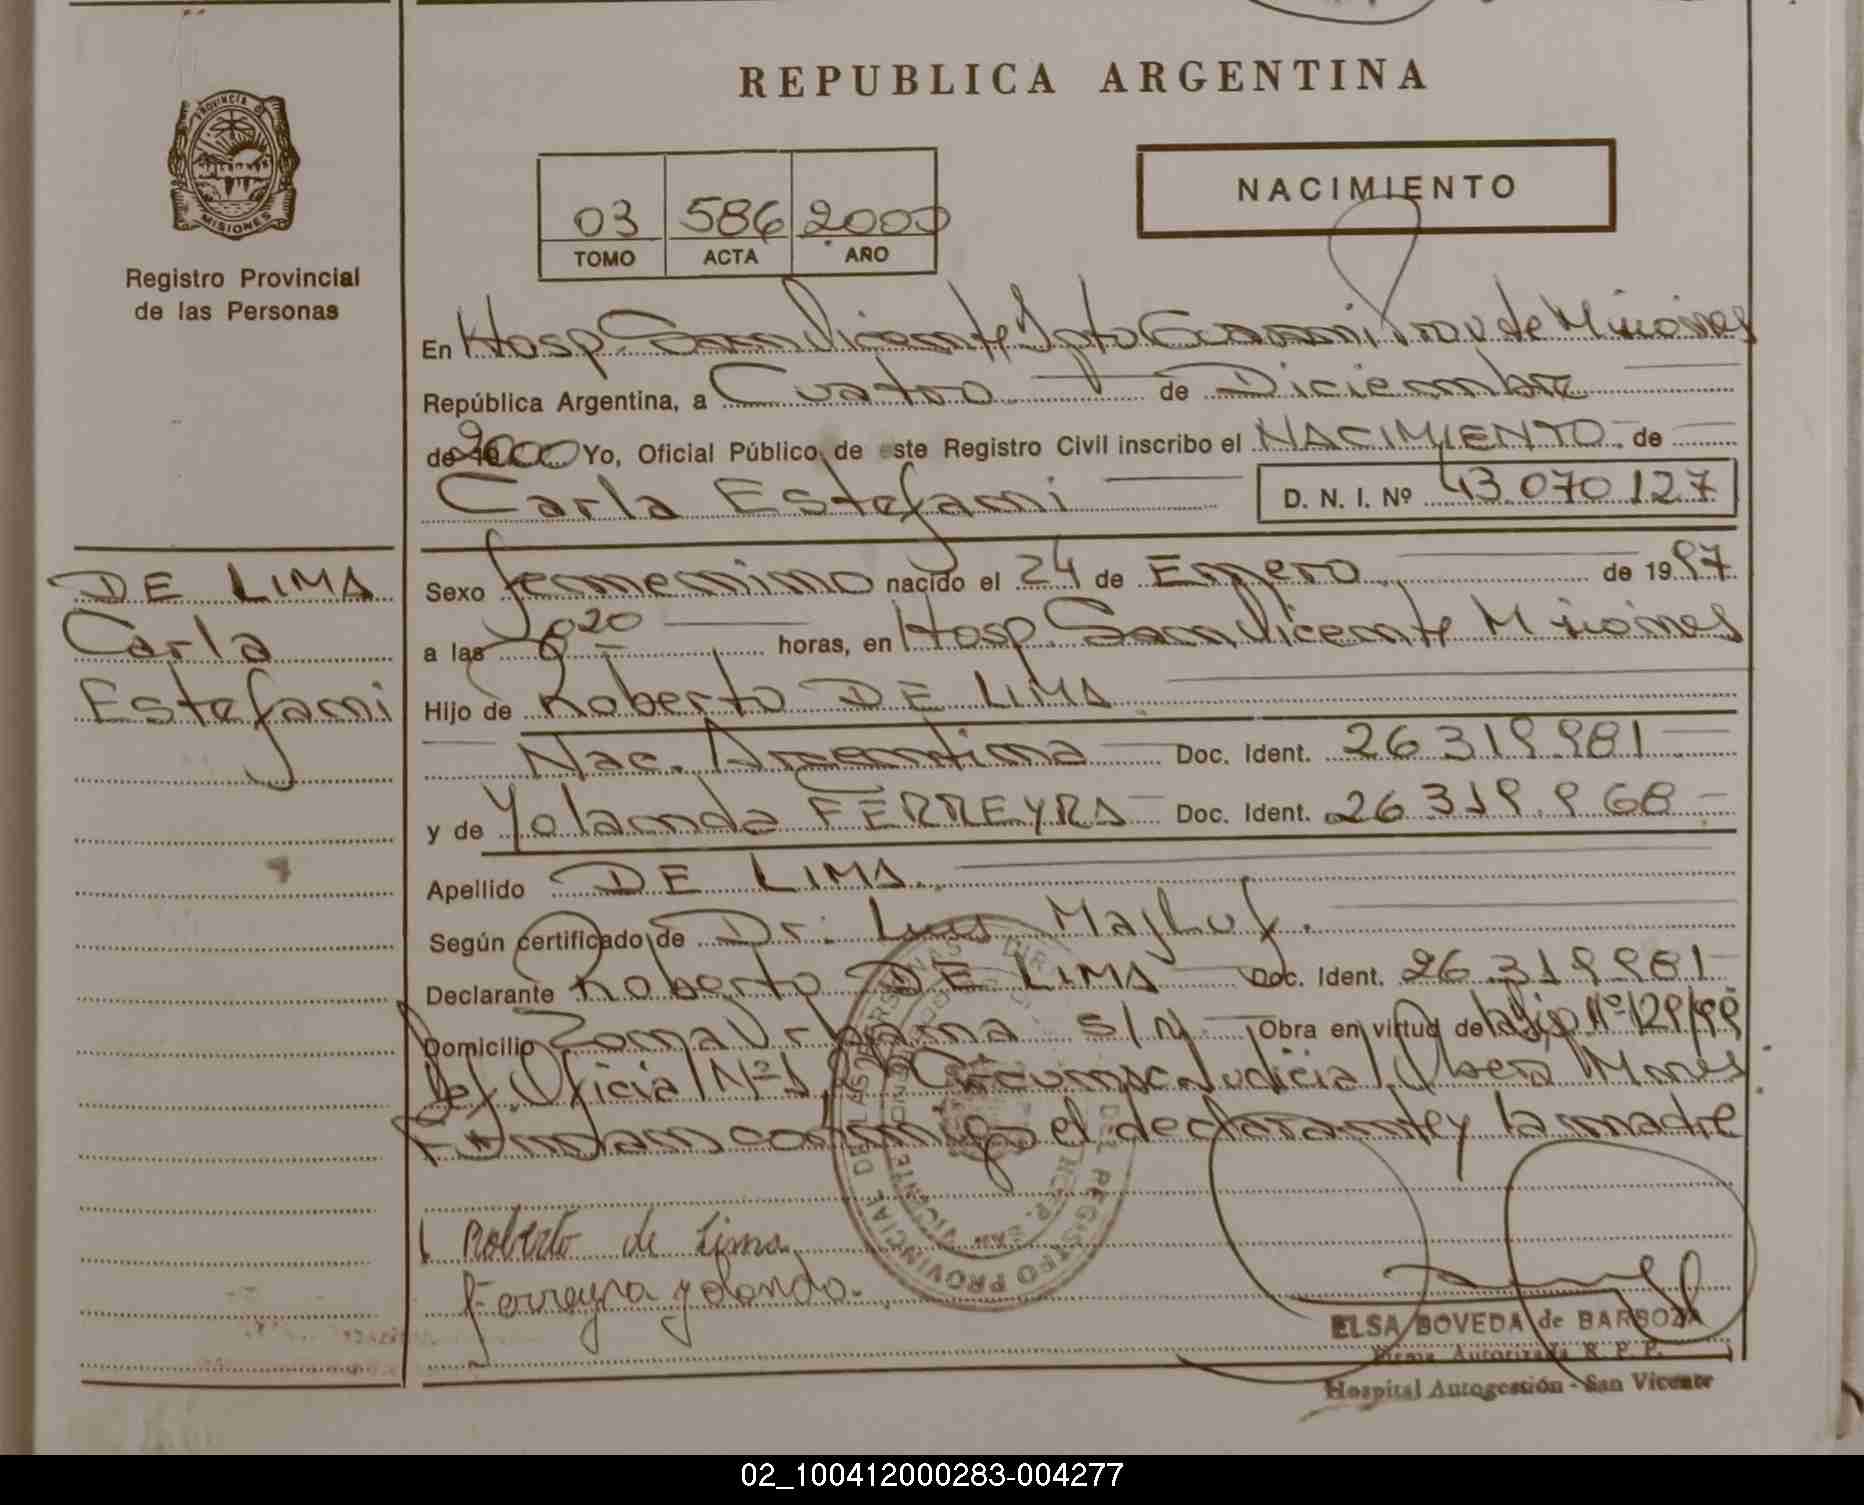 REPUBLICA ARGENTINA
PROVINCIA DE MISIONES
Registro Provincial
de las Personas
03 586 2000
TOMO ACTA AÑO
NACIMIENTO
En Hosp San Vicente Dpto Guarani Prov de Misiones
República Argentina, a Cuatro de Diciembre
de 2000 Yo, Oficial Público de este Registro Civil inscribo el NACIMIENTO de
Carla Estefani D. N. I. Nº 43.070.127
DE LIMA
Carla
Estefani
Sexo femenino nacido el 24 de Enero de 1997
a las 6 20 horas, en Hosp. San Vicente Misiones
Hijo de Roberto DE LIMA
Nac. Argentina Doc. Ident. 26.319.981
y de Yolanda FERREYRA Doc. Ident. 26.319.968
Apellido DE LIMA
Según certificado de Dr. Luis Majluf.
Declarante Roberto DE LIMA Doc. Ident. 26.319.981
Domicilio Zona Urbana s/N Obra en virtud de Nº 129/99
Def. Oficial Nº 1 Circunsc. Judicial Obera Mnes
Firman conmigo el declarante y la madre
Roberto de Lima
Ferreyra yolanda.
ELSA BOVEDA de BARBOZA
Firma Autorizada R. P. P.
Hospital Autogestión - San Vicente
02_100412000283-004277